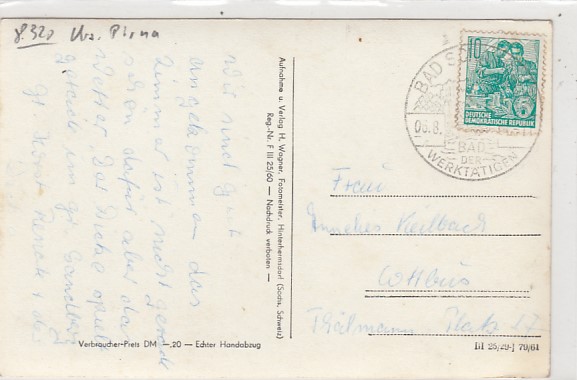 8320 Krs. Pirna
Wir sind gut
angekommen das
Zimmer ist nicht gerade
schön dafür aber das
Wetter. Das Insche spielt
gerade im gr. Sandberg
Aufnahme u. Verlag H. Wagner, Fotomeister, Hinterhermsdorf (Sächs. Schweiz)
Reg.-Nr. F III 25/60 — Nachdruck verboten —
Verbraucher-Preis DM —,20 — Echter Handabzug
10
DEUTSCHE
DEMOKRATISCHE REPUBLIK
BAD
06.8.
BAD
DER
WERKTÄTIGEN
Frau
Keilbach
Cottbus
Thälmann Platz 17
III 25/29-J 70/61